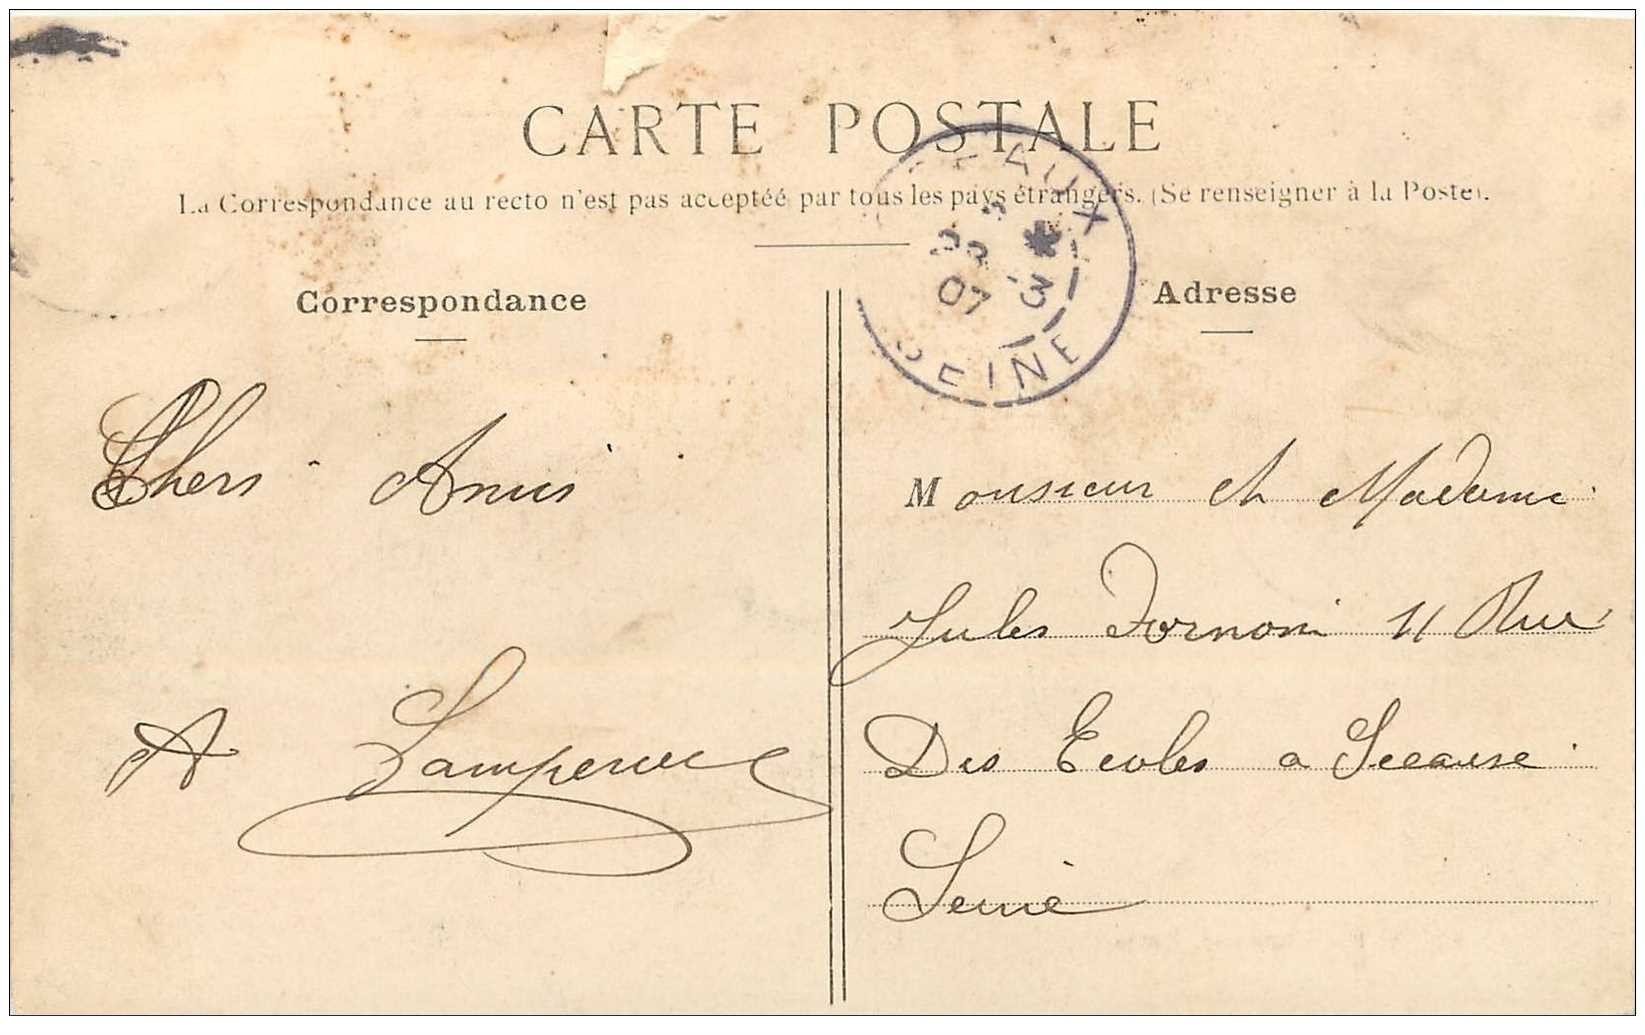 CARTE POSTALE
La Correspondance au recto n'est pas acceptée par tous les pays étrangers. (Se renseigner à la Poste).
Correspondance
Adresse
EAUX
*
23 -3
07
SEINE
Chers Amis
A
Monsieur et Madame
Jules Fornoni 11 Rue
Des Ecoles a Sceause
Seine